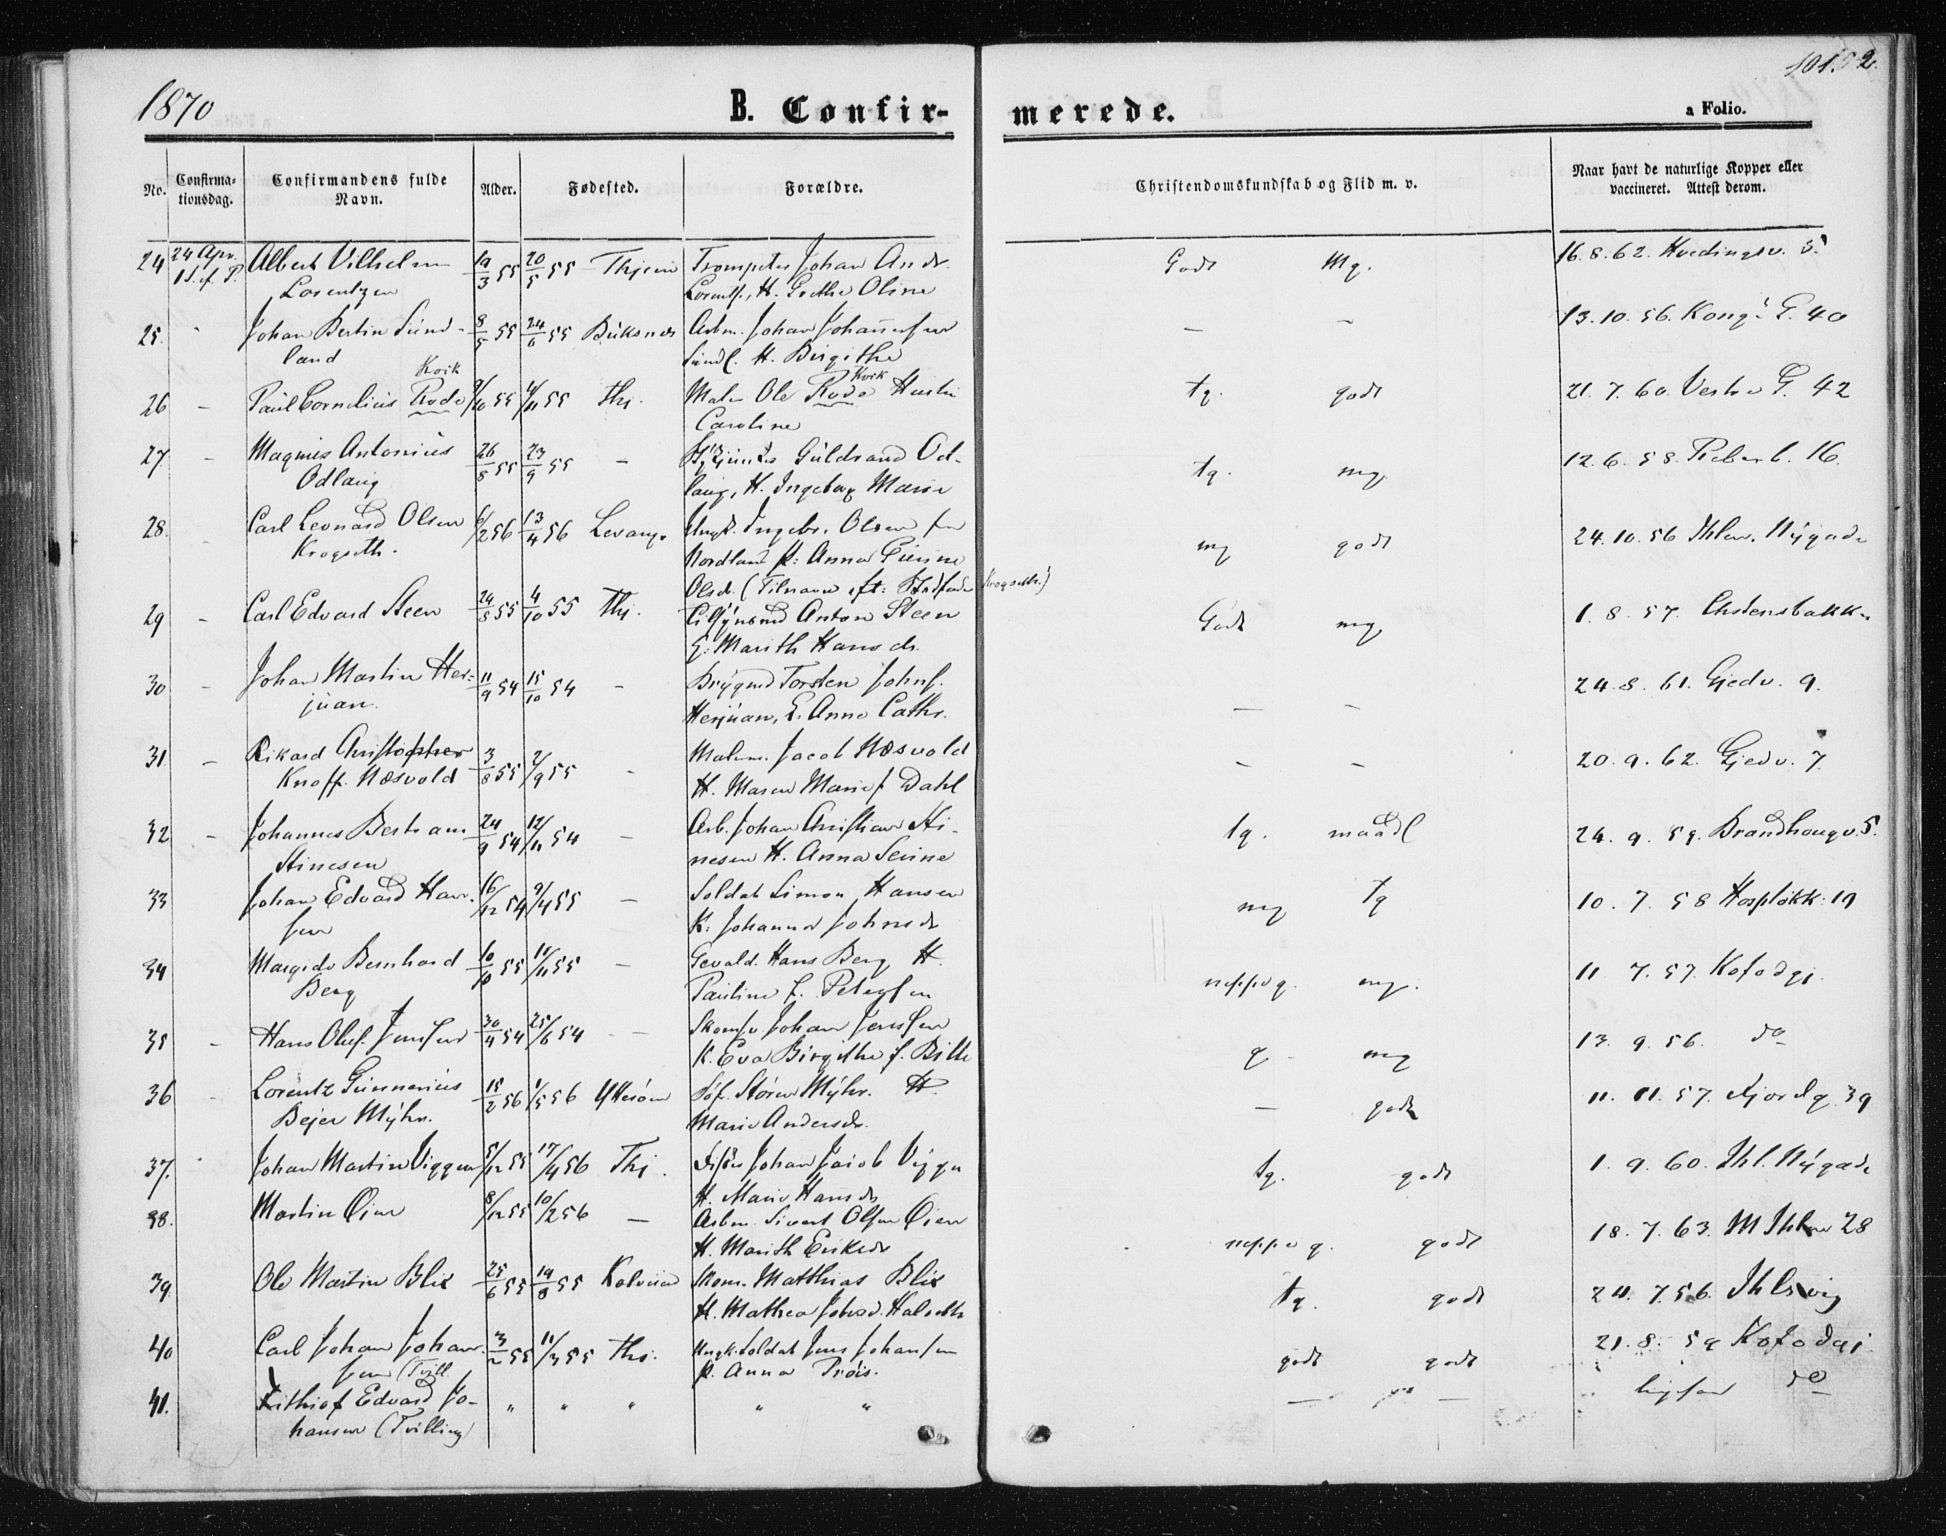 1870
B. Confir-
merede.
101.
2.
a Folio.
No.
Confirma-
tionsdag.
Confirmandens fulde
Navn.
Alder.
Fødested.
Forældre.
Christendomskundskab og Flid m. v.
Naar havt de naturlige Kopper eller
vaccineret. Attest derom.
24 24 Apr. Albert Vilhelm 19/3 55 20/5 55 Trompeter Johan Andr. Godt Mg. 16. 8. 62.
1 S. ef. P. Lorentzen Lorents., H. Grethe Oline
25. Johan Bertin Sund- 8/5 55 24/6 55 Buksnes Arbm. Johan Johannesen — — 13. 10. 56. Kong. G. 40
land Sundl. H. Birgithe
Kvik Kvik
26 — Paul Cornelius Rode 9/10 55 4/11 55 Thj. Maler Ole Rode Hustru tg. godt 21. 7. 60. Vestre G. 42
Caroline
27 — Magnus Antonius 26/8 55 23/9 55 — Guldrand Od- tg. mg 12. 6. 58. 16.
Odlaug laug, H. Ingeborg Marie
28. Carl Leonard Olsen 6/2 56 13/4 56 Levang. Ungk. Ingebr. Olsen fra mg godt 24. 10. 56 Ihlen. Nygade
Krogseth. Nordland p: Anna
Olsd. (Tilnavn eft: Stedfader Krogseth.)
29 — Carl Edvard Steen 24/8 55 4/10 55 Thj. Anton Steen Godt mg 1. 8. 57.
E. Marith Hansdr.
30 — Johan Martin Her- 11/9 54 15/10 54 — Torsten Johns. — — 24. 8. 61. Gjedv. 9.
juan. Herjuan, E. Anne Cathr.
31 — Rikard Christopher 3/8 55 2/9 55 — Malerm. Jacob Næsvold — — 20. 9. 62. Gjedv. 7.
Knoff Næsvold H. Maren Marie f. Dahl
32 — Johannes Bertram 24/9 54 12/11 54 — Arb. Johan Christian Sti- tg. maadl 24. 9. 59. Brandhaugv. 5.
Stinesen nesen H. Anna
33 Johan Edvard Han- 16/12 54 9/4 55 — Soldat Simon Hansen mg tg 10. 7. 58
sen K. Johanna Johnsdr
34 Margido Bernhard 10/10 55 11/11 55 — Gevald. Hans Berg H. neppe g. mg. 11 7. 57.
Berg Pauline f. Petersen
35 — Hans Oluf Jensen 30/4 54 25/6 54 — Johan Jensen g mg 13. 9. 56. do
K. Eva Birgithe f.
36 Lorentz Gunnerius 15/2 56 1/5 56 Ytterøen Søf. Større Myhr. H. — godt 11. 11. 57. Fjordg 39
Bejer Myhr. Marie Andersdr.
37. Johan Martin Viggen 5/12 55 17/4 56 Thj. Johan Jacob Viggen tg. godt 1. 9. 60. Ihl. Nygade
H. Marie Hansdr
38. Martin Øien 8/12 55 10/2 56 — Arbm. Sivert Olsen Øien neppe g. godt 18. 7. 63. M Ihlen 28
H. Marith Eriksdr
39. Ole Martin Blix 25/6 55 19/8 55 Kolvereid Skom. Matthias Blix tg. godt 24. 7. 56. Ihlsvig
H. Mathea Johnsd. Halseth
40 Carl Johan Johan- 3/2 55 11/3 55 Thj. Ungk. Soldat Jens Johansen godt godt 21. 8. 59
sen (Tvill p. Anna
41. Frithiof Edvard Jo- " " " " " — — do
hansen (Tvilling)